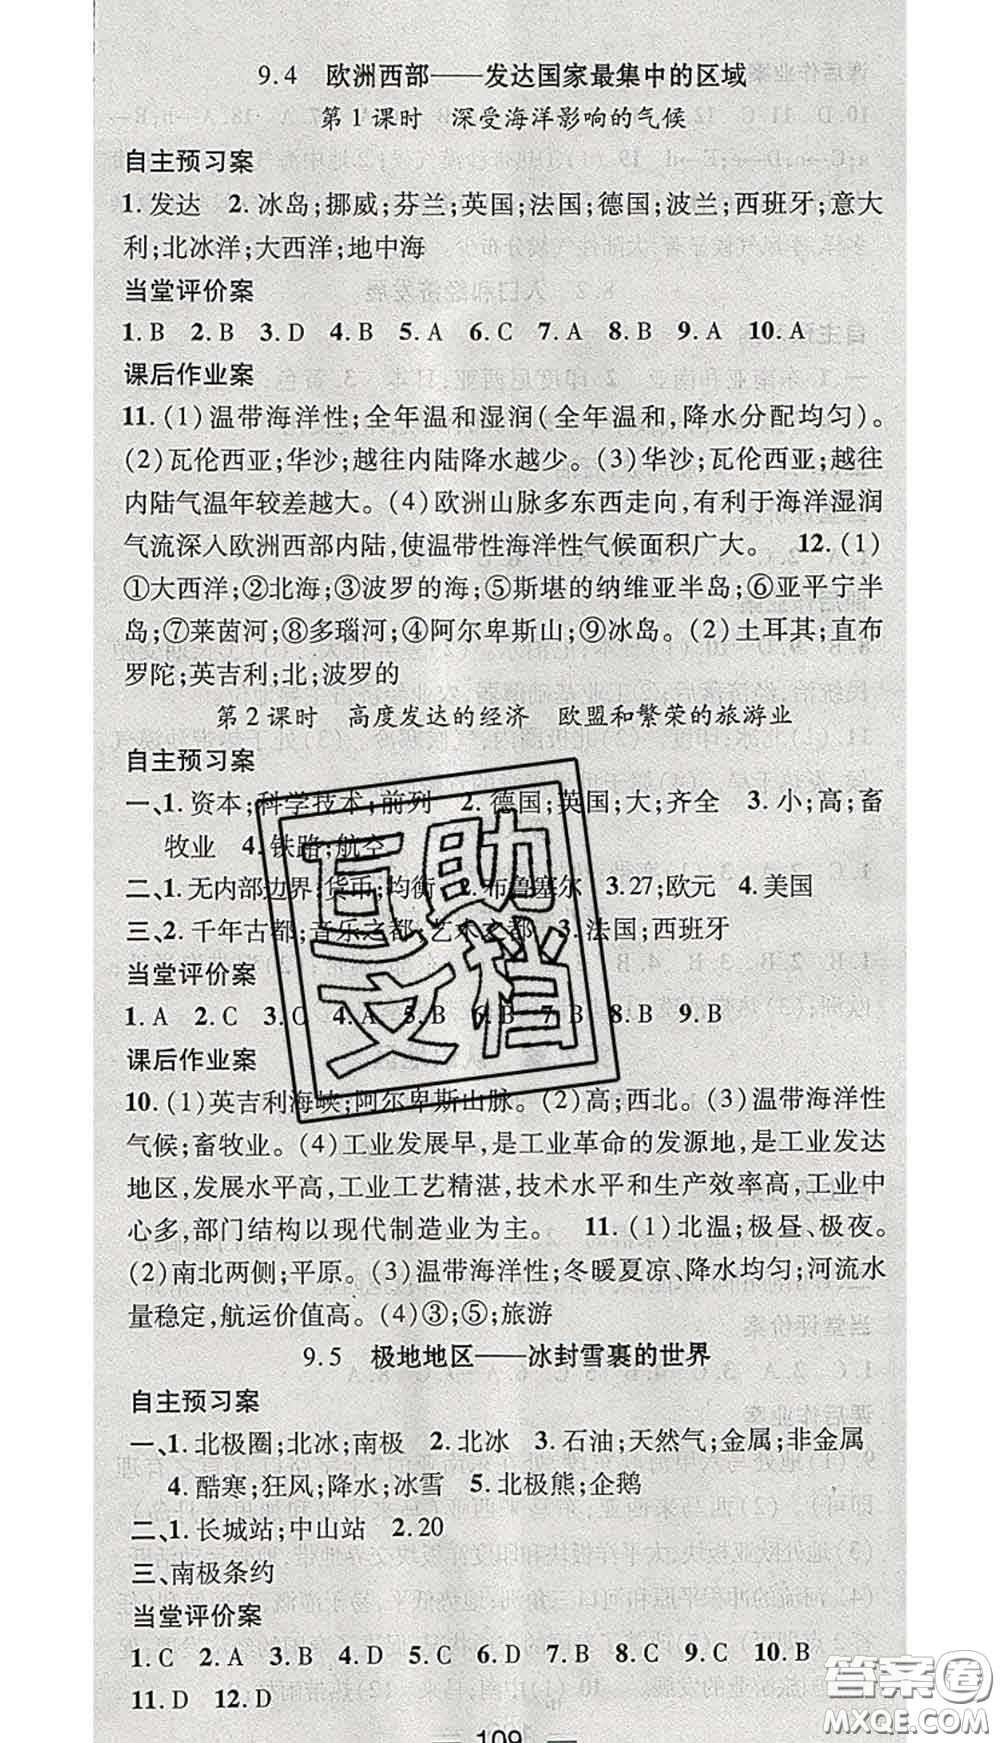 9.4 欧洲西部——发达国家最集中的区域
第1课时 深受海洋影响的气候
自主预习案
1.发达 2.冰岛;挪威;芬兰;英国;法国;德国;波兰;西班牙;意大
利;北冰洋;大西洋;地中海
当堂评价案
1.B 2.B 3.D 4.B 5.A 6.C 7.A 8.B 9.A 10.A
课后作业案
11.(1)温带海洋性;全年温和湿润(全年温和,降水分配均匀)。
(2)瓦伦西亚;华沙;越往内陆降水越少。(3)华沙;瓦伦西亚;越往
内陆气温年较差越大。(4)欧洲山脉多东西走向,有利于海洋湿润
气流深入欧洲西部内陆,使温带性海洋性气候面积广大。 12.(1)
①大西洋;②北海;③波罗的海;⑤斯堪的纳维亚半岛;⑥亚平宁半
岛;⑦莱茵河;⑧多瑙河;④阿尔卑斯山;⑨冰岛。(2)土耳其;直布
罗陀;英吉利;北;波罗的
第2课时 高度发达的经济 欧盟和繁荣的旅游业
自主预习案
一、1.资本;科学技术;前列 2.德国;英国;大;齐全 3.小;高;畜
牧业 4.铁路;航空
二、1.无内部边界;货币;均衡 2.布鲁塞尔 3.27;欧元 4.美国
三、2.千年古都;音乐之都;艺术之都 3.法国;西班牙
当堂评价案
1.A 2.C 3.C 4.A 5.B 6.B 7.B 8.B 9.B
课后作业案
10.(1)英吉利海峡;阿尔卑斯山脉。(2)高;西北。(3)温带海洋性
气候;畜牧业。(4)工业发展早,是工业革命的发源地,是工业发达
地区,发展水平高,工业工艺精湛,技术水平和生产效率高,工业中
心多,部门结构以现代制造业为主。 11.(1)北温;极昼、极夜。
(2)南北两侧;平原。(3)温带海洋性;冬暖夏凉、降水均匀;河流水
量稳定,航运价值高。(4)③;⑤;旅游
9.5 极地地区——冰封雪裹的世界
自主预习案
一、1.北极圈;北冰;南极 2.北冰 3.石油;天然气;金属;非金属
4.酷寒;狂风;降水;冰雪 5.北极熊;企鹅
二、1.长城站;中山站 2.20
三、南极条约
当堂评价案
1.C 2.A 3.B 4.D 5.D 6.B 7.D 8.C 9.C 10.B
11.D 12.D
109
互助
文档
答案圈
MXQE.COM